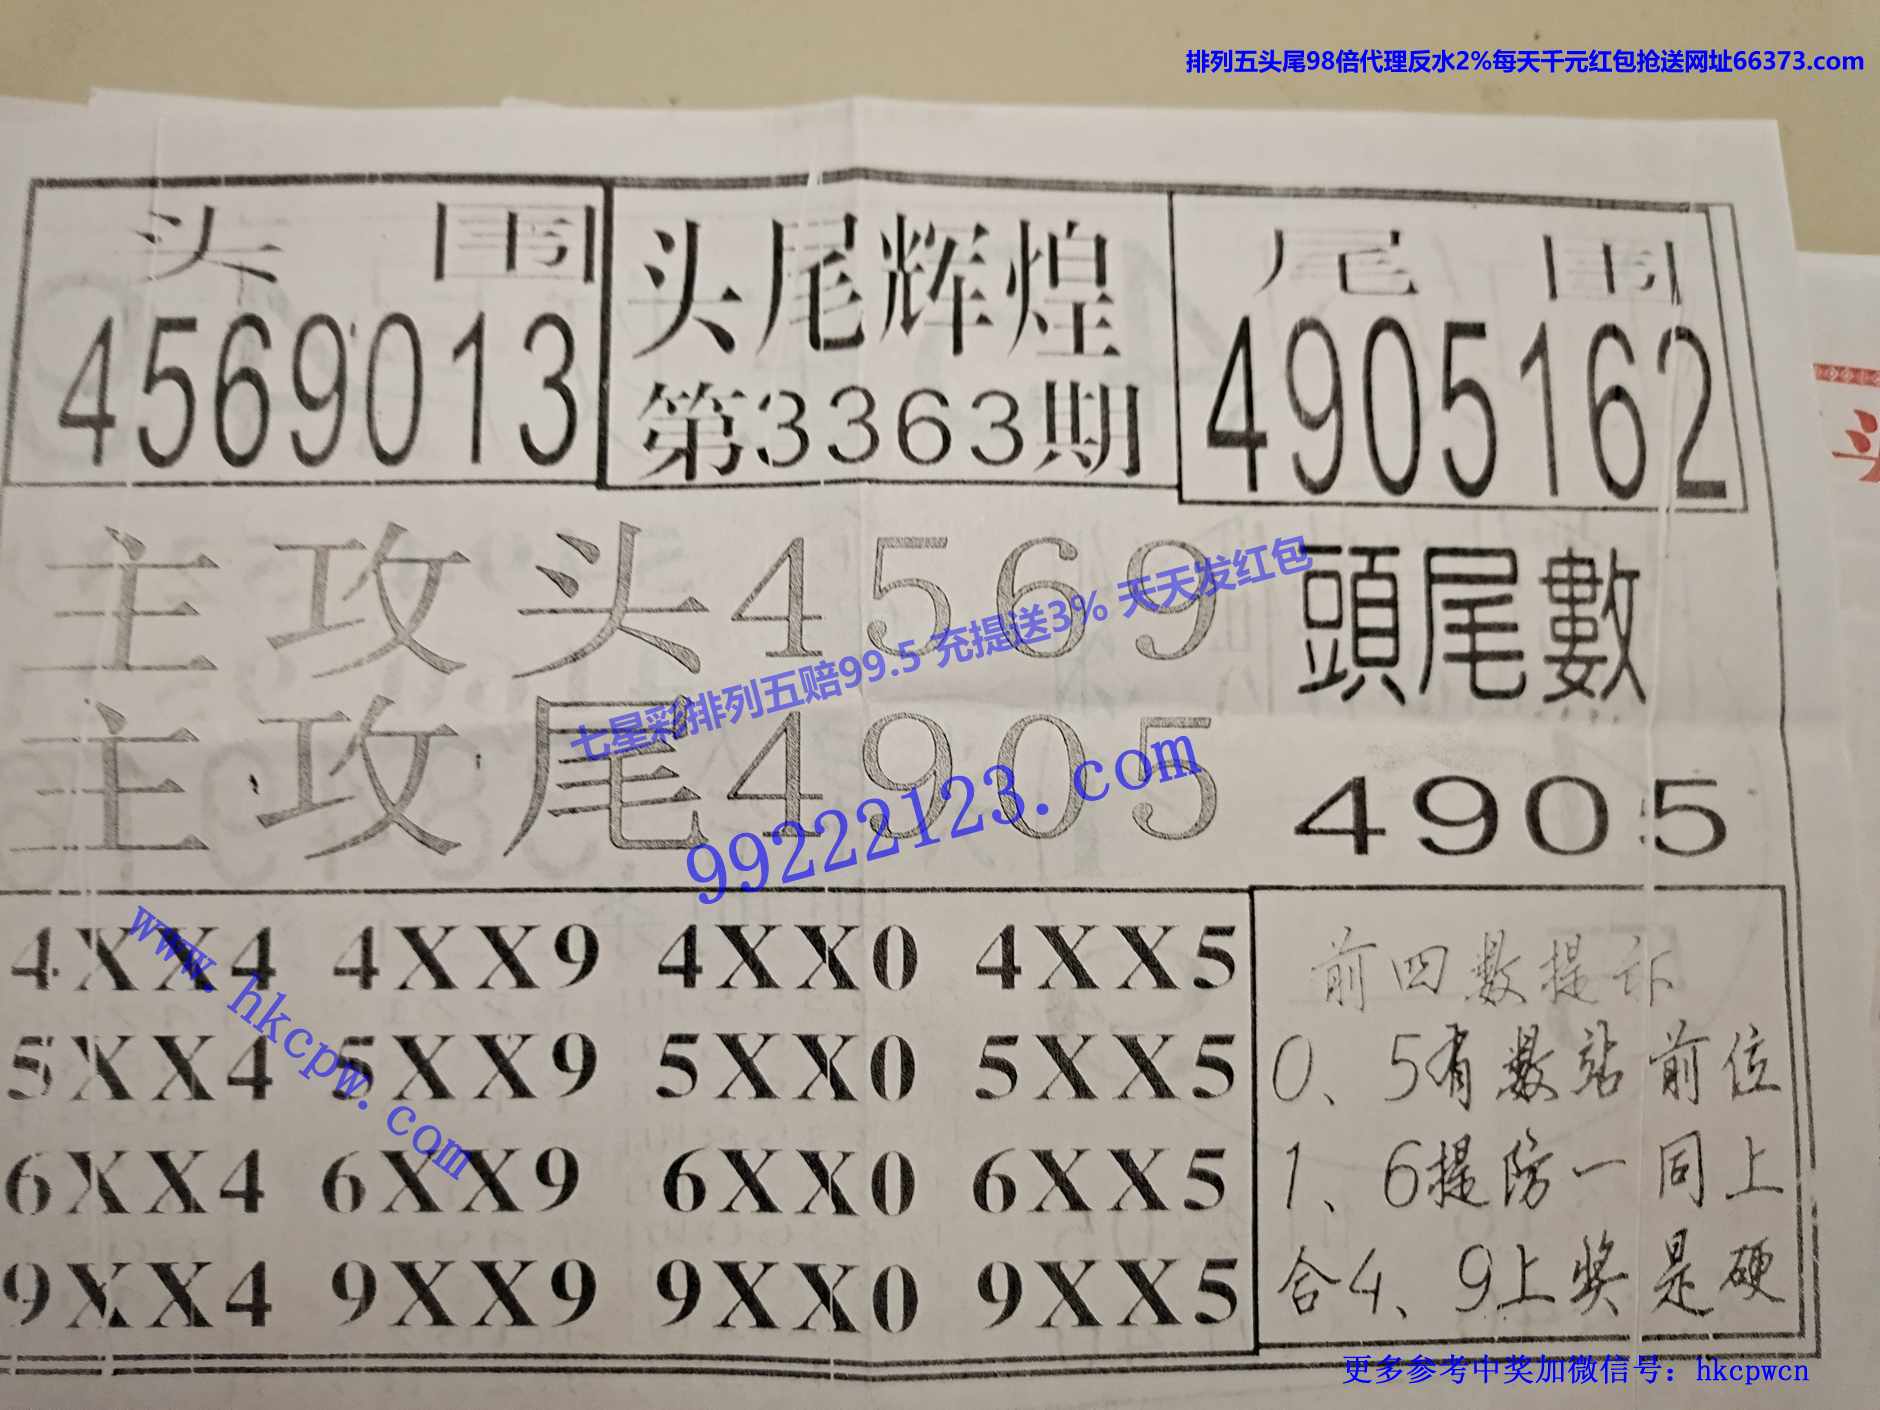 排列五头尾98倍代理反水2%每天千元红包抢送网址66373.com
头 围
4569013
头尾辉煌
第3363期
尾 围
4905162
主攻头4569
主攻尾4905
頭尾數
4905
七星彩排列五赔99.5 充提送3% 天天发红包
99222123.com
www.hkcpw.com
4XX4 4XX9 4XX0 4XX5
5XX4 5XX9 5XX0 5XX5
6XX4 6XX9 6XX0 6XX5
9XX4 9XX9 9XX0 9XX5
前四数提
0、5有数站前位
1、6提防一同上
合4、9上奖是硬
更多参考中奖加微信号：hkcpwcn
头